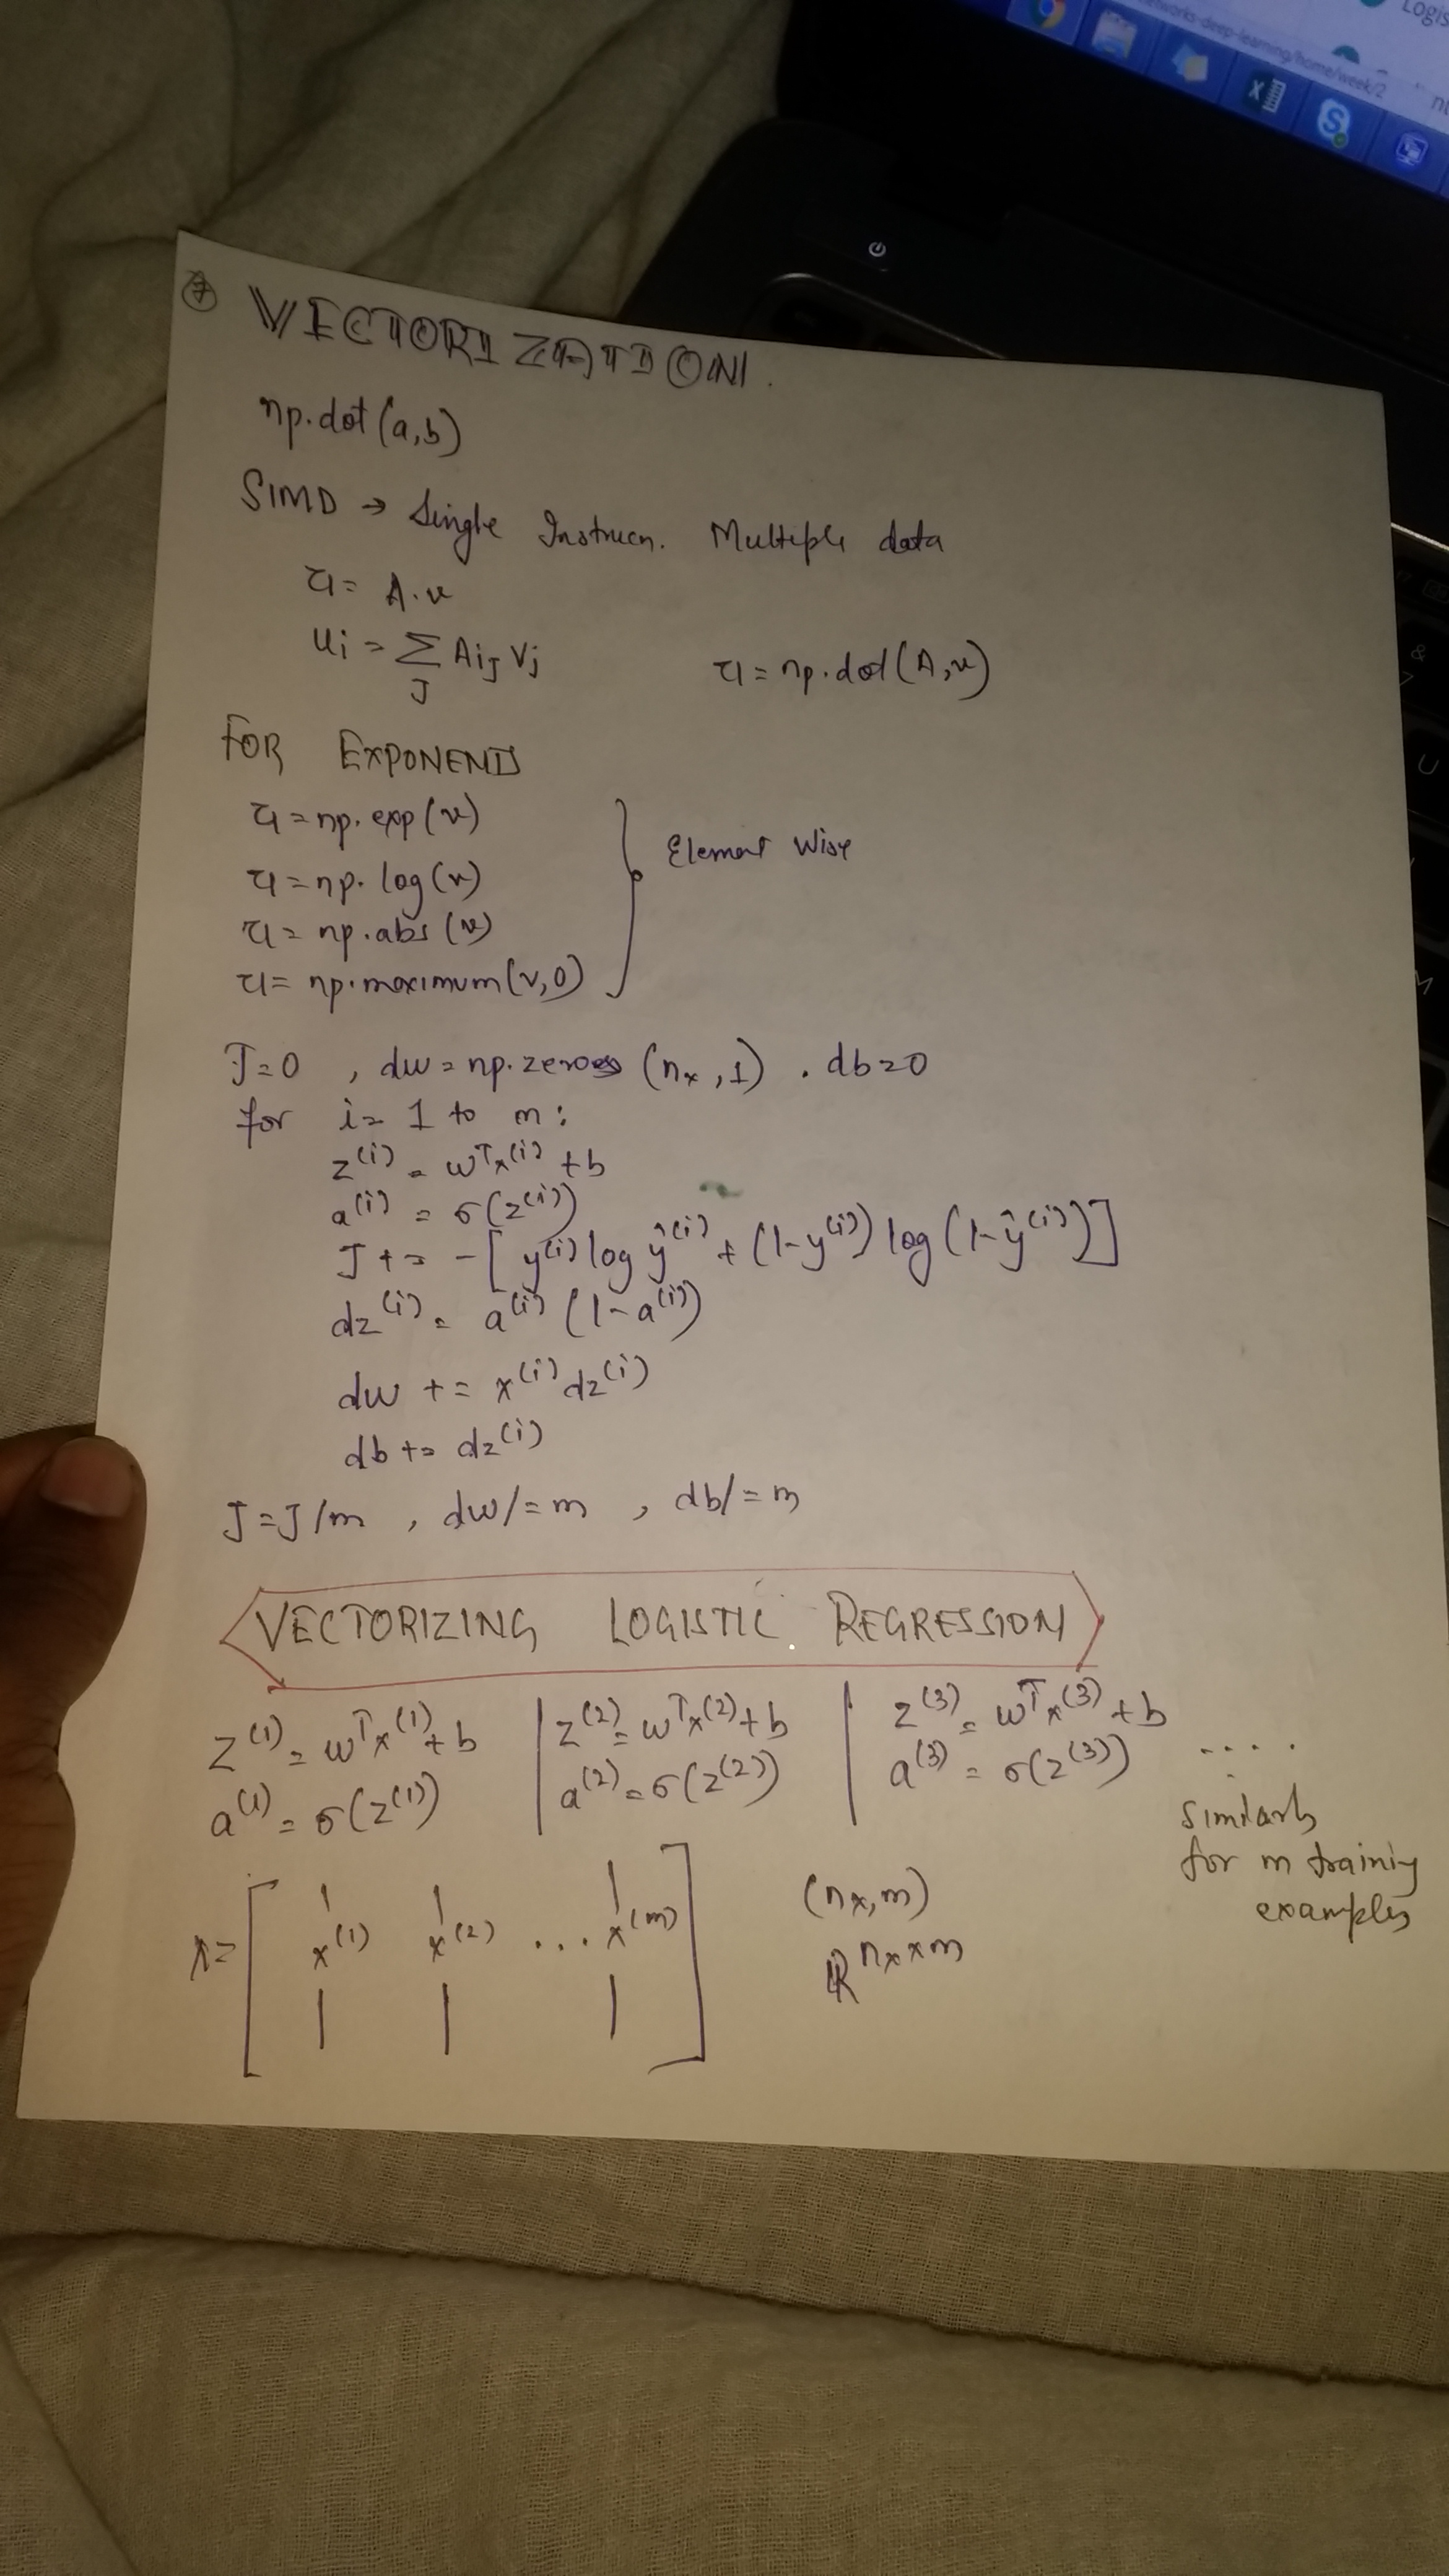 Logis
networks-deep-learning/home/week/2
7 VECTORIZATION.
np.dot(a,b)
SIMD → Single Instrucn. Multiple data
u = A.v
ui = Σ Aij Vj
J
u = np.dot(A,v)
FOR EXPONENTS
u = np.exp(v)
u = np.log(v)
u = np.abs(v)
u = np.maximum(v,0)
Element Wise
J=0 , dw = np.zeroes (nx,1) . db=0
for i= 1 to m:
z^(i) = w^T x^(i) + b
a^(i) = σ(z^(i))
J += -[y^(i) log ŷ^(i) + (1-y^(i)) log (1-ŷ^(i))]
dz^(i) = a^(i) (1-a^(i))
dw += x^(i) dz^(i)
db += dz^(i)
J = J/m , dw/=m , db/=m
VECTORIZING LOGISTIC REGRESSION
z^(1) = w^T x^(1) + b | z^(2) = w^T x^(2) + b | z^(3) = w^T x^(3) + b
a^(1) = σ(z^(1)) | a^(2) = σ(z^(2)) | a^(3) = σ(z^(3)) ....
Similarly
for m training
examples
X = [ x^(1) x^(2) ... x^(m) ]
(nx,m)
ℝ^nx×m
&
7
U
M